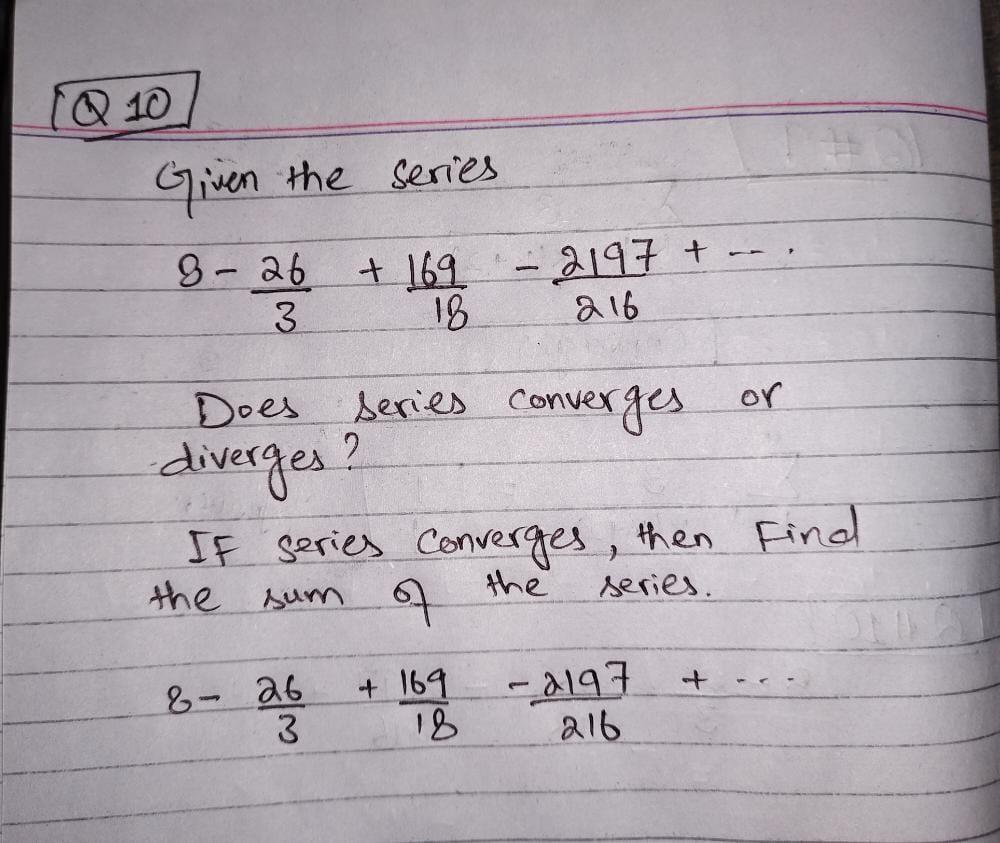 Q 10
Given the series
8 - 26/3 + 169/18 - 2197/216 + ---.
Does series converges or
diverges?
IF series converges, then Find
the sum of the series.
8 - 26/3 + 169/18 - 2197/216 + ---